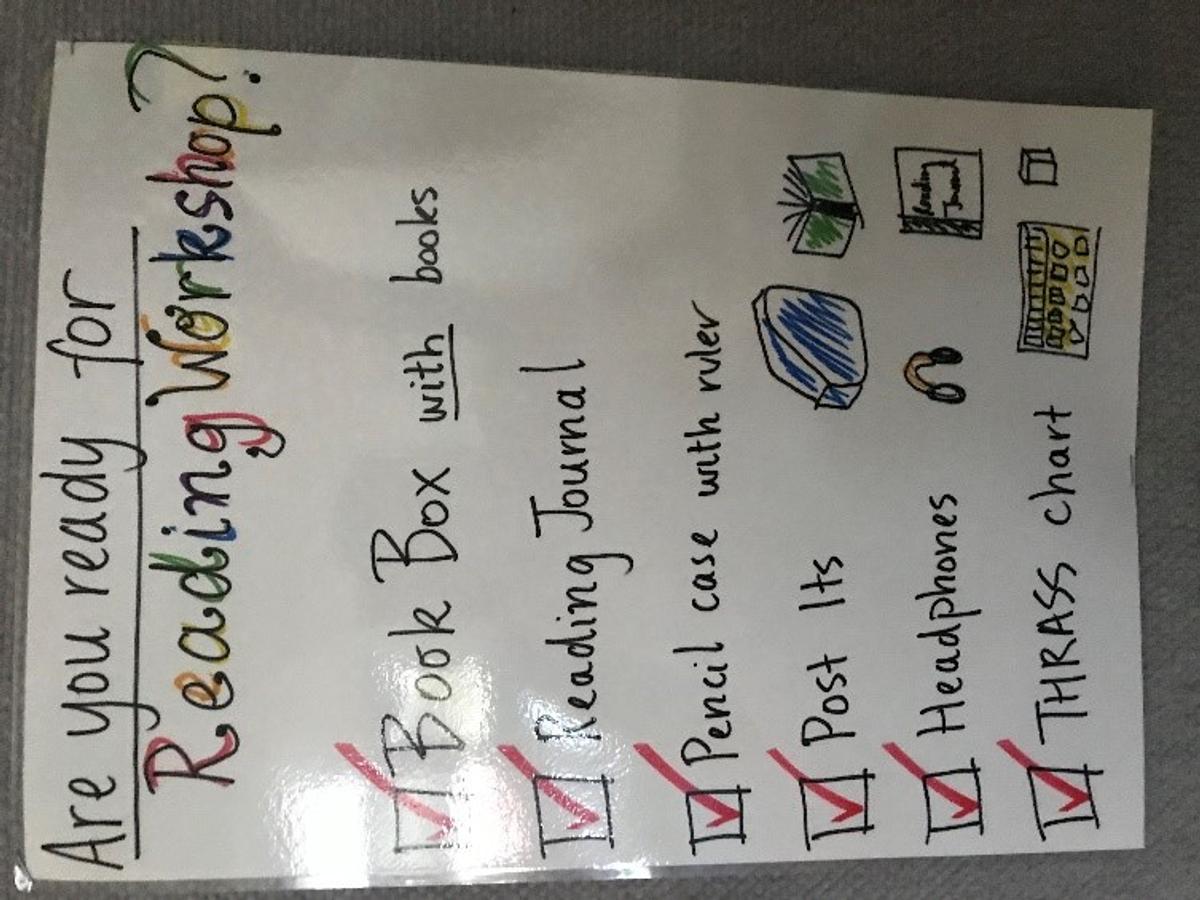 Are you ready for
Reading Workshop?
Book Box with books
Reading Journal
Pencil case with ruler
Post Its
Headphones
THRASS chart
Reading
Journal